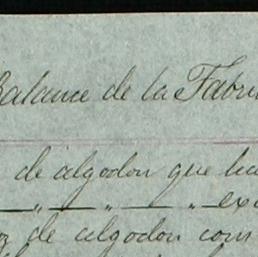 Balance de la Fabri
de algodon que ha
" " " " ex
de algodon cons